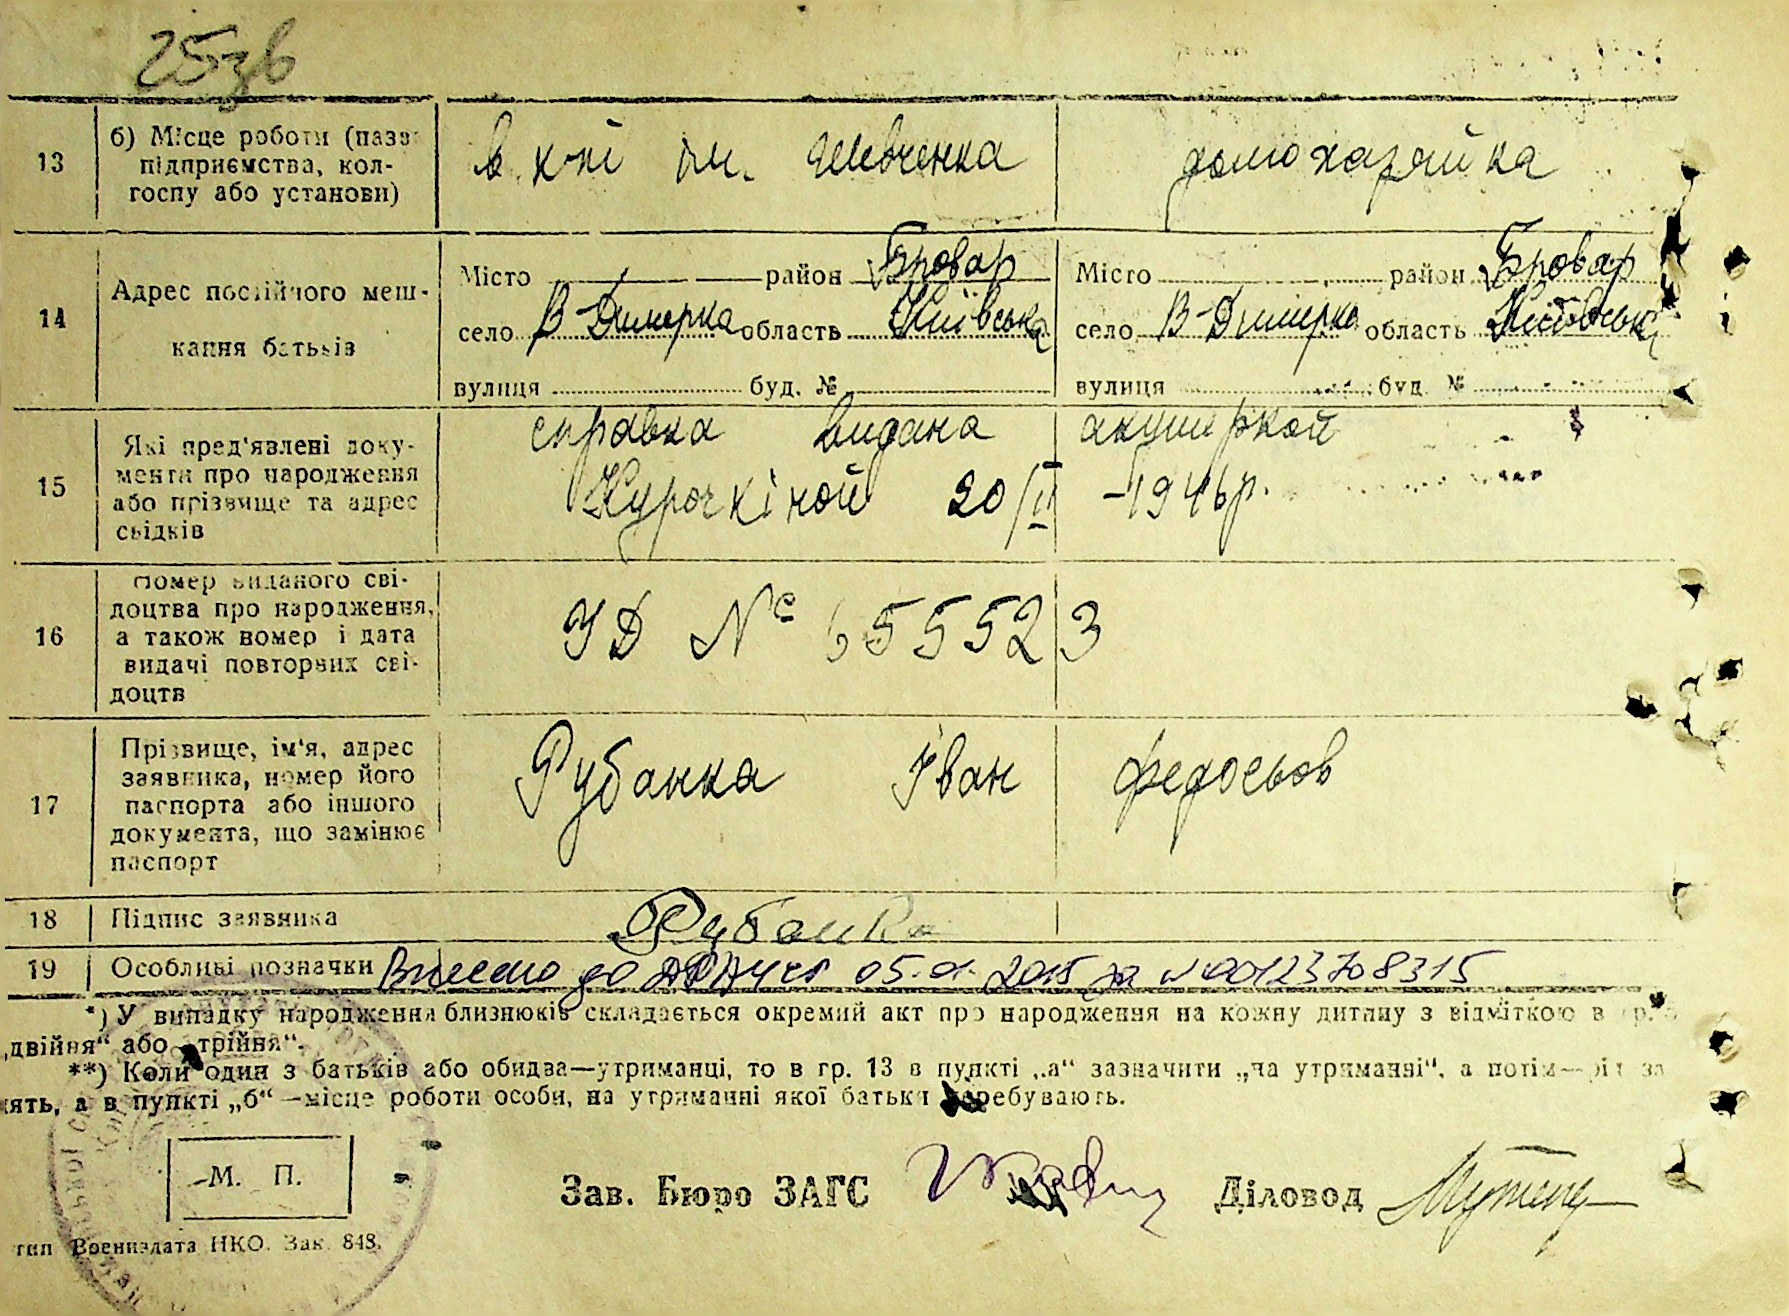 25зв
13 б) Місце роботи (назва підприємства, колгоспу або установи) в к-пі ім. Шевченка домохазяйка
14 Адрес постійного мешкання батьків
Місто район Бровар Місто район Бровар
село В-Димерка область Київська село В-Димерка область Київськ
вулиця буд. № вулиця буд. №
15 Які пред'явлені документи про народження або прізвище та адрес свідків
справка видана акушеркой
Курочкіной 20/II -1946р.
16 Номер виданого свідоцтва про народження, а також номер і дата видачі повторних свідоцтв
УД № 655523
17 Прізвище, ім'я, адрес заявника, номер його паспорта або іншого документа, що замінює паспорт
Рубанка Іван Федосьов
18 Підпис заявника Рубанка
19 Особливі позначки Внесено до 05.01.2015 за №00123708315
*) У випадку народження близнюків складається окремий акт про народження на кожну дитину з відміткою в гр.
„двійня“ або „трійня“.
**) Коли один з батьків або обидва—утриманці, то в гр. 13 в пункті „а“ зазначити „на утриманні“, а потім—рід за
нять, а в пункті „б“ —місце роботи особи, на утриманні якої батьки перебувають.
М. П.
Зав. Бюро ЗАГС Діловод
тип Воениздата НКО. Зак. 848.